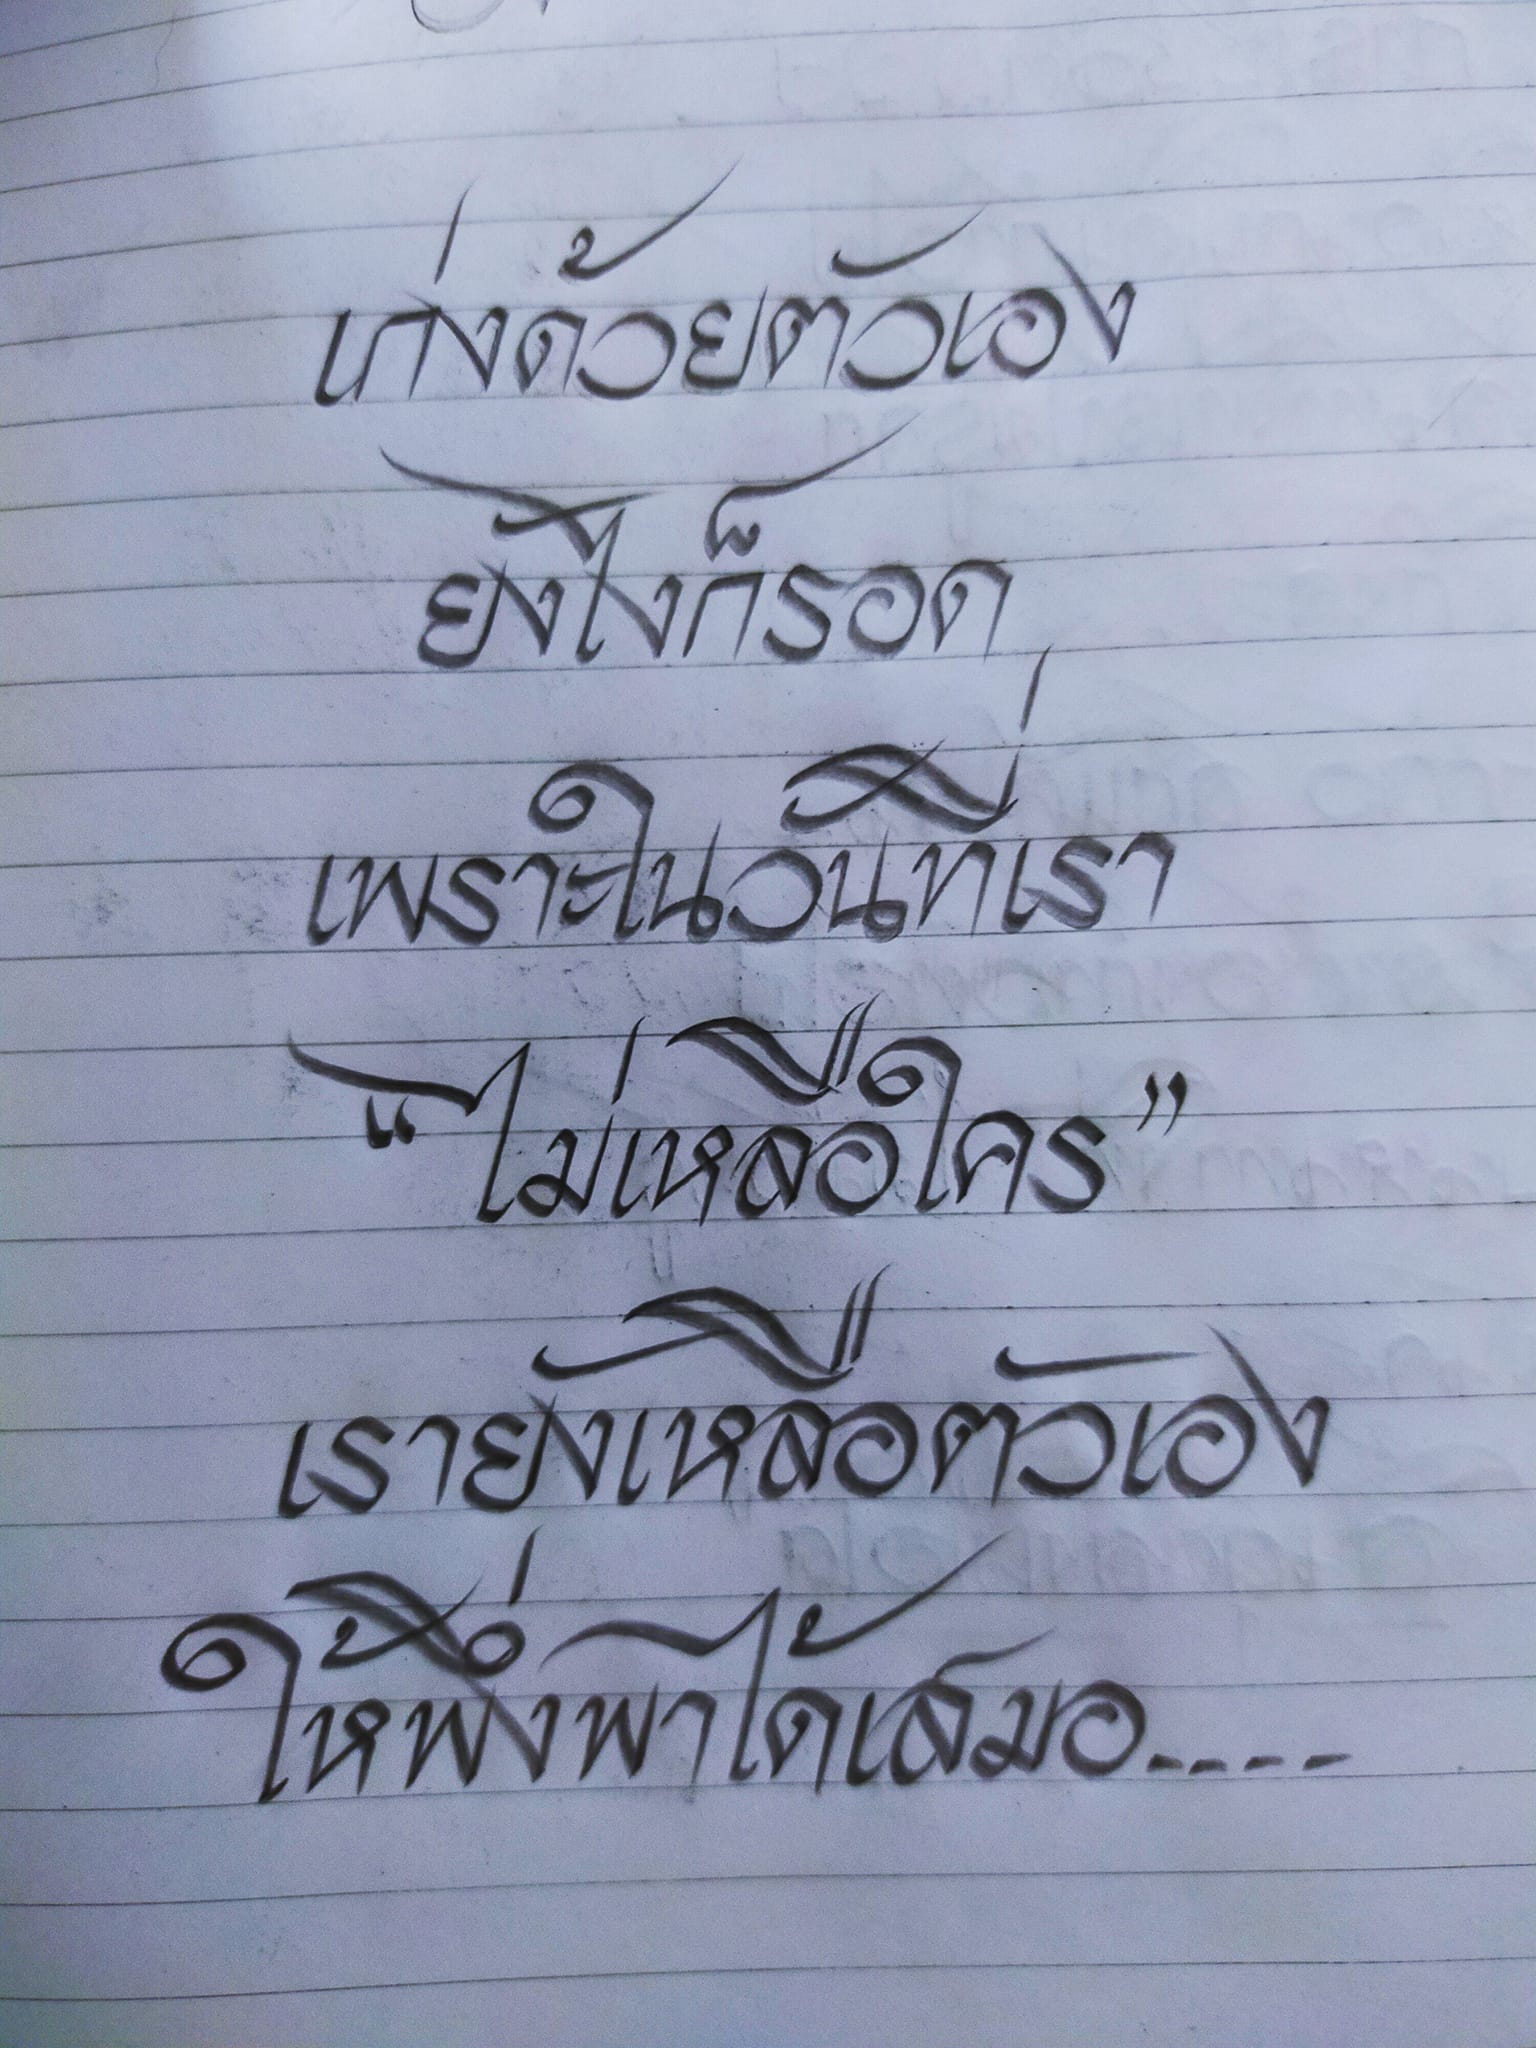 เก่งด้วยตัวเอง
ยังไงก็รอด
เพราะในวันที่เรา
“ไม่เหลือใคร”
เรายังเหลือตัวเอง
ให้พึ่งพาได้เสมอ....